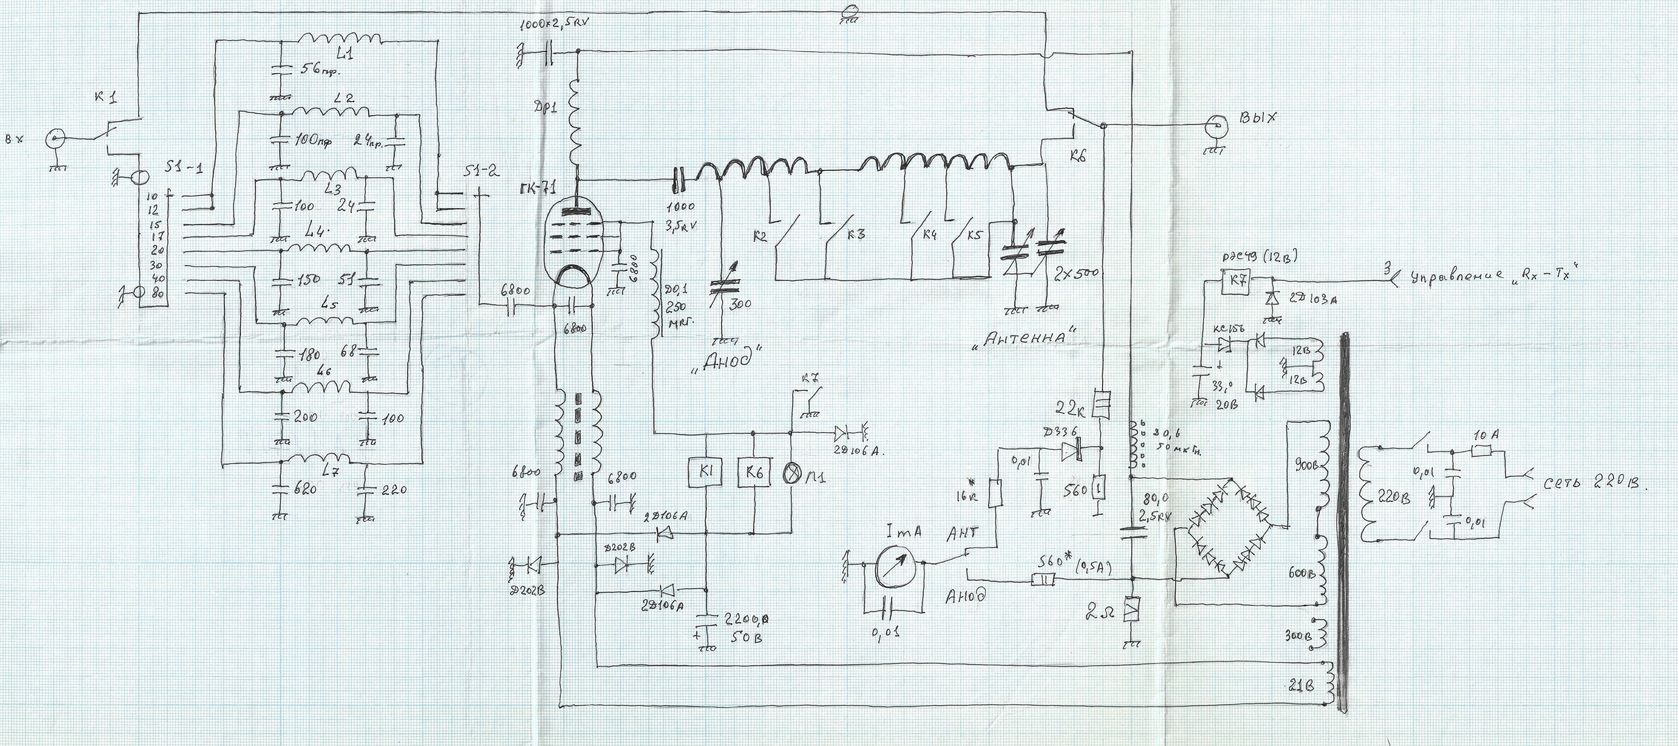 1000x2,5kV
L1
56пф.
К1
L2
Др1
Вых
вх
100пф
24пф.
S1-1
S1-2
К6
L3
ГК-71
10
12
15
17
20
30
40
80
100
24
1000
3,5kV
L4
К2
К3
К4
К5
150
51
6800
6800
6800
Др,1
250
мкГ.
300
2x500
РЭС49 (12В)
К7
Управление „Rx-Tx“
2Д103А
L5
180
68
„Анод“
„Антенна“
КС156
12В
12В
+
33,0
20В
L6
200
100
К7
22к
Д336
30,6
50мкГн.
2Д106А.
10А
L7
620
220
6800
6800
К1
К6
Л1
0,01
16к
*
560
80,0
2,5kV
900В
220В
0,01
0,01
сеть 220В.
2Д106А
1mA
АНТ
Д202В
Д202В
560* (0,5А)
Анод
600В
2Д106А
2200,0
50В
+
0,01
2Ω
300В
21В